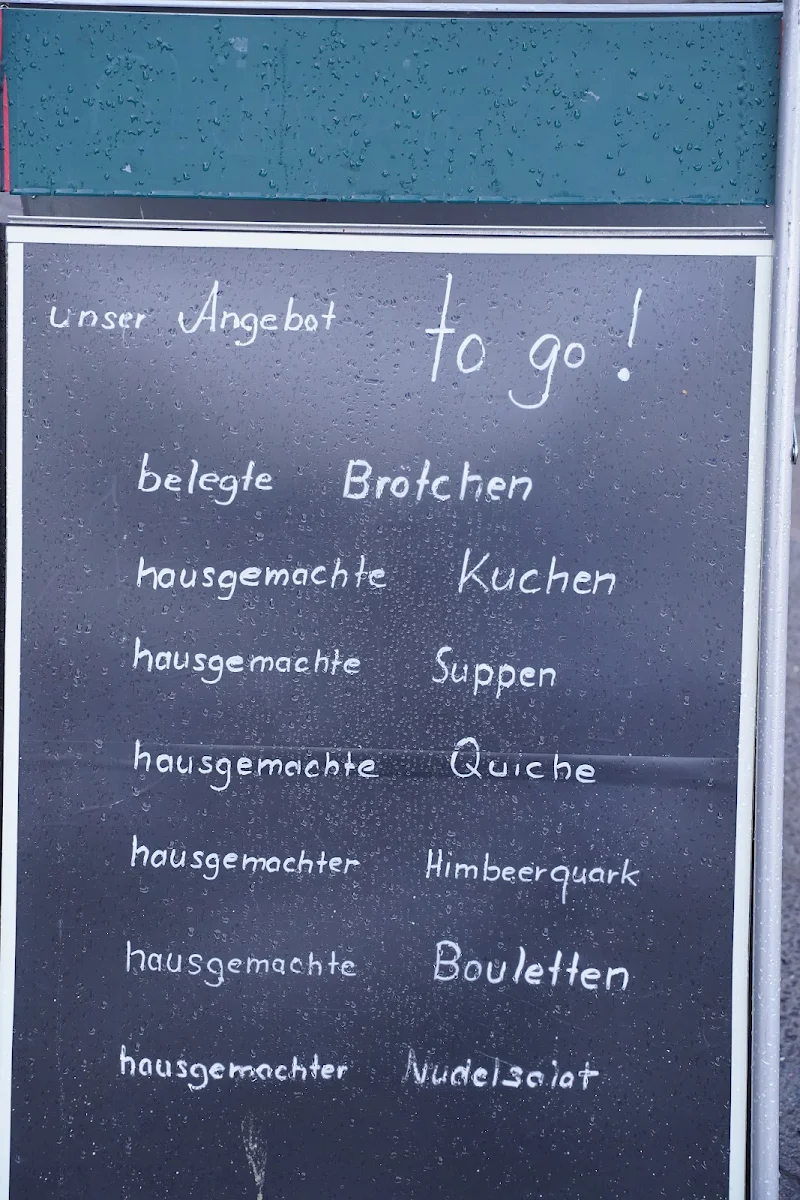 unser Angebot to go!
belegte Brötchen
hausgemachte Kuchen
hausgemachte Suppen
hausgemachte Quiche
hausgemachter Himbeerquark
hausgemachte Bouletten
hausgemachter Nudelsalat